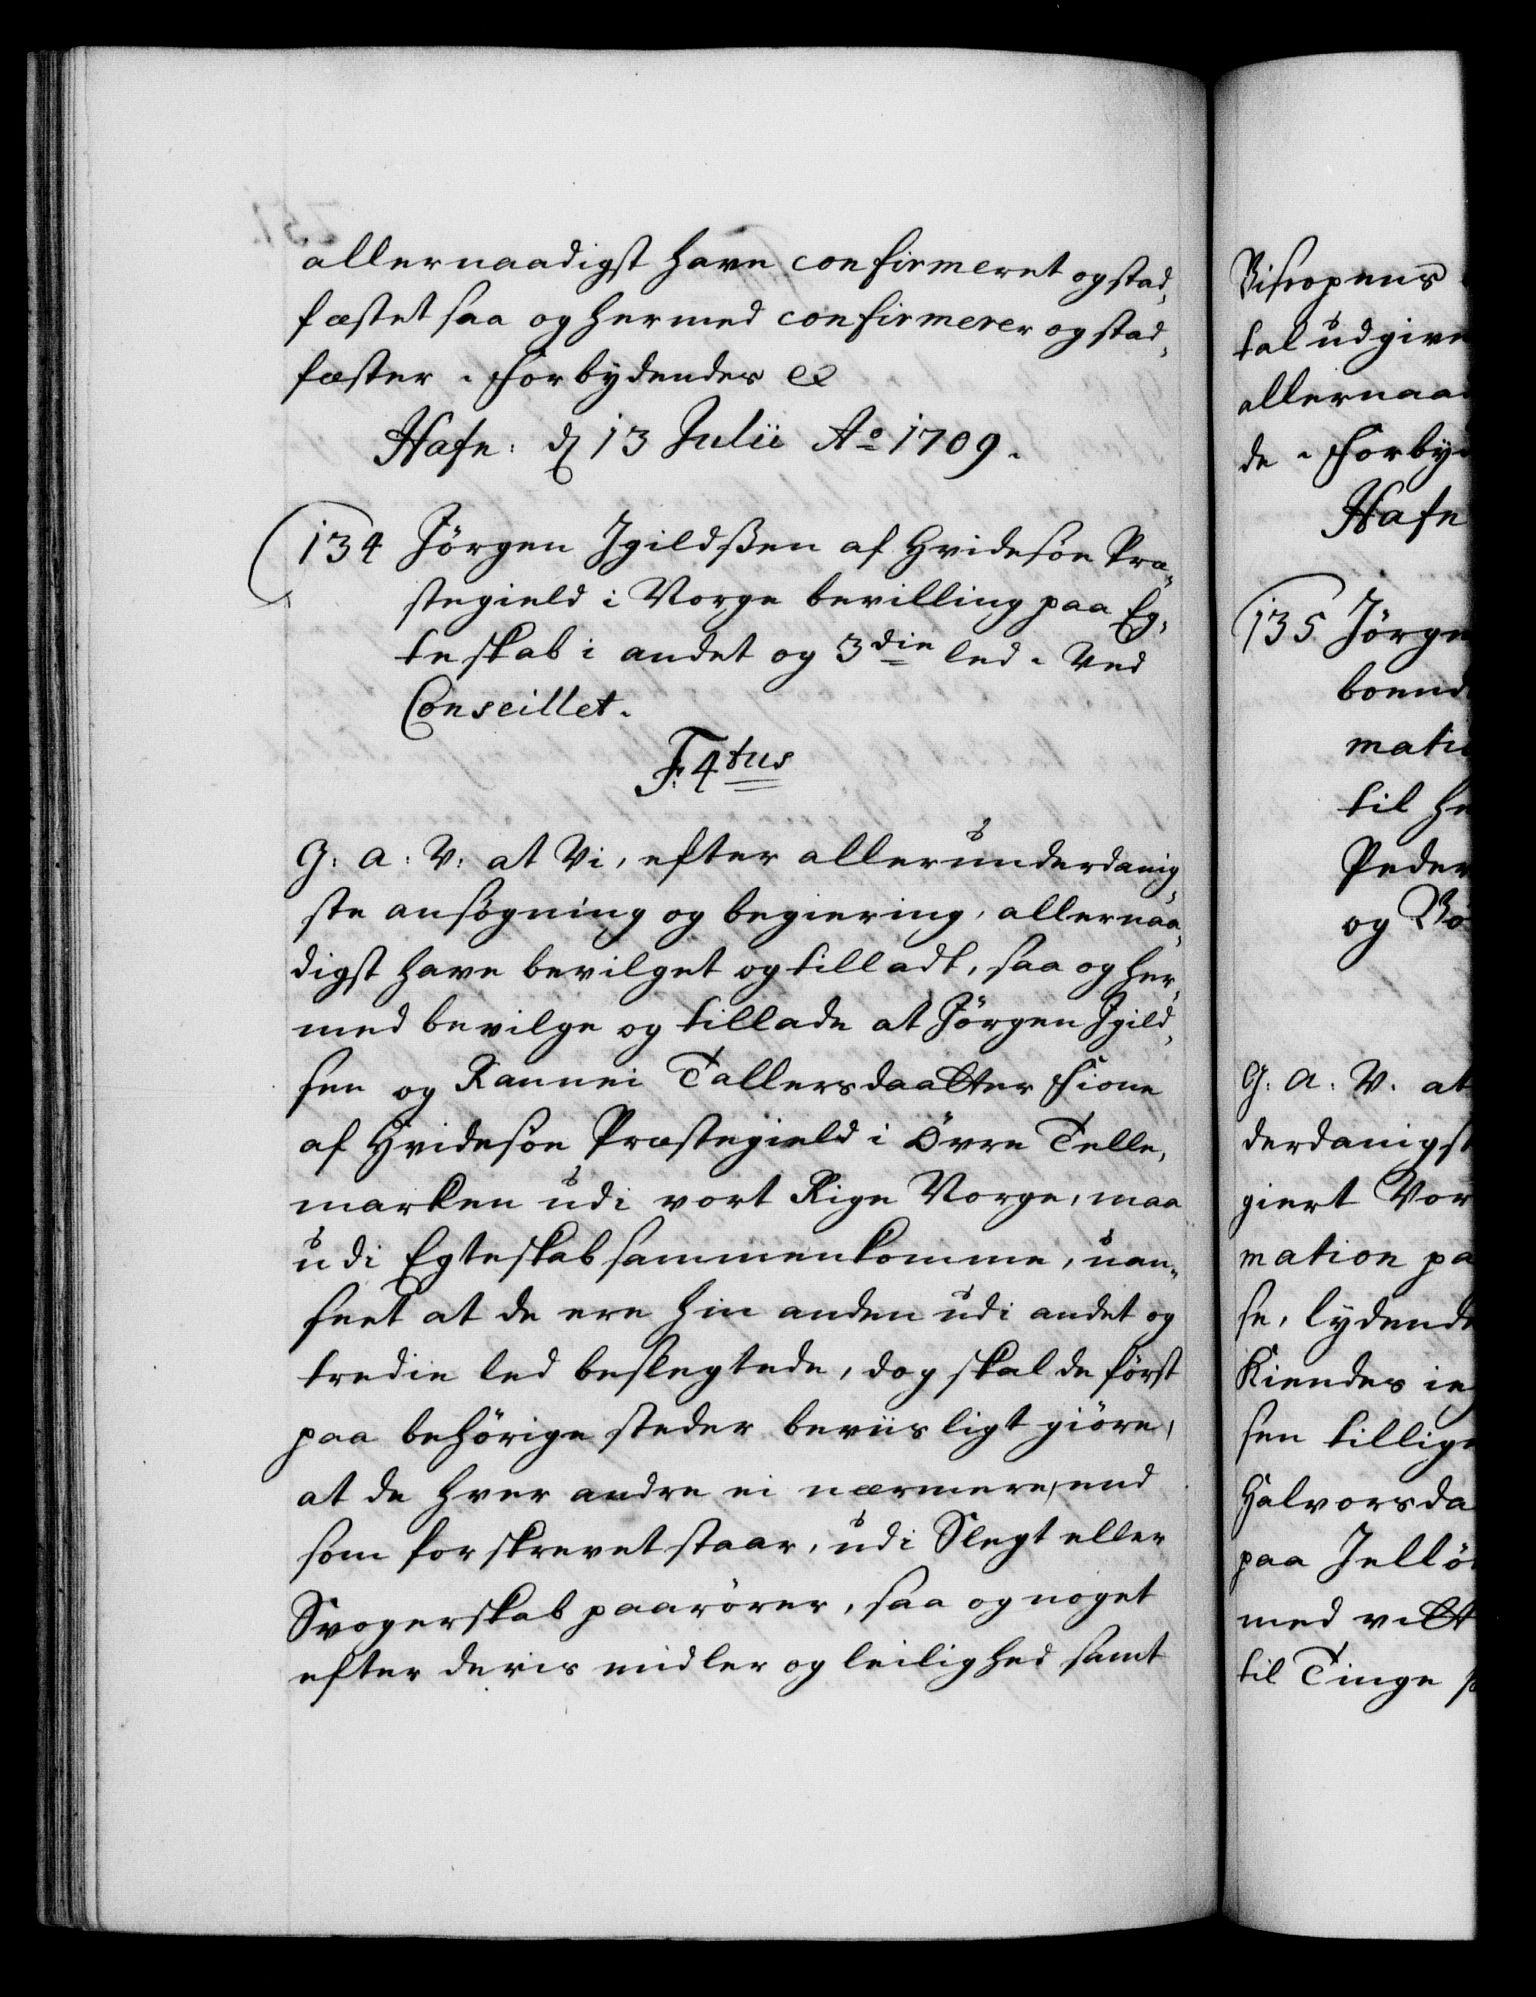 allernaadigst have confirmeret og stad,
fæstet saa og hermed confirmerer og stad,
fæster. Forbydendes &
Hafn: d 13 Julii Ao 1709.
134 Jörgen Igildßen af Hvidesöe Præ,
stegield i Norge bevilling paa Eg,
teskab i andet og 3die led. Ved
Conseillet.
F: 4tus
G: a: V: at Vi, efter allerunderdanig,
ste ansögning og begiering, allernaa,
digst have bevilget og tilladt, saa og her,
med bevilge og tillade at Jörgen Igild,
sen og Rannei Tallersdaatter Fione
af Hvidesöe Præstegield i Övre Telle,
marken udi vort Rige Norge, maa
udi Egteskab sammenkomme, uan,
seet at de ere hin anden udi andet og
tredie led beslegtede, dog skal de först
paa behörige steder beviisligt giöre,
at de hver andre ei nærmere, end
som forskrevet staar, udi Slegt eller
Svogerskab paarörer, saa og noget
efter deris midler og leilighed samt
Bispens
tal udgive
allernaa
de. Forby
Hafn
135 Jörge
boend
mati
til he
Peder
og Bo
G: a: V: at
derdanigst
giert Vor
mation pa
se, lydende
Kiendes ie
sen tillige
Halvorsda
paa Jellö
med vitt
til Tinge